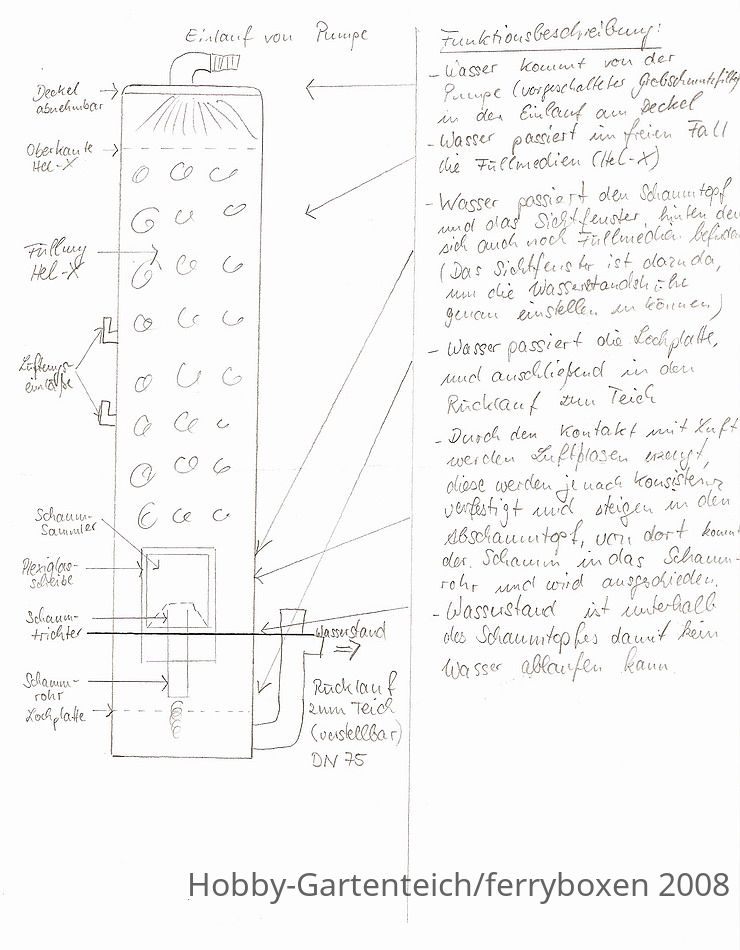 Einlauf von Pumpe
Deckel
abnehmbar
Oberkante
Hel-X
Füllung
Hel-X
Lüftungs-
einläße
Schaum-
Sammler
Plexiglas-
scheibe
Schaum-
trichter
Schaum-
rohr
Lochplatte
Wasserstand
Rücklauf
zum Teich
(verstellbar)
DN 75
Funktionsbeschreibung:
- Wasser kommt von der
Pumpe (vorgeschalteter
in den Einlauf am Deckel
- Wasser passiert im freien Fall
die Füllmedien (Hel-X)
- Wasser passiert den Schaumtopf
und das Sichtfenster, hinter dem
sich auch noch Füllmedien
(Das Sichtfenster ist dazu da,
um die Wasserstandshöhe
genau einstellen zu können)
- Wasser passiert die Lochplatte,
und anschließend in den
Rücklauf zum Teich
- Durch den Kontakt mit Luft
werden Luftblasen erzeugt,
diese werden je nach Konsistenz
verfestigt und steigen in den
Abschaumtopf, von dort kommt
der Schaum in das Schaum-
rohr und wird ausgeschieden.
- Wasserstand ist unterhalb
des Schaumtopfes damit kein
Wasser ablaufen kann.
Hobby-Gartenteich/ferryboxen 2008